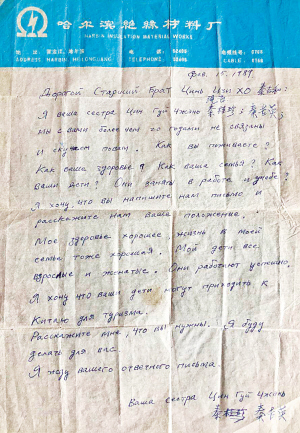 哈尔滨绝缘材料厂
HARBIN INSULATION MATERIAL WORKS
ADDRESS: HARBIN HEILONGJIANG
TELEPHONE: 52608
CABLE: 0766
Фев. 15. 1989.
Дорогой Старший Брат Цинь Цзи ХО
Я ваша сестра Цин Гуй Чжэнь
Мы с вами более чем 20 годами, не связаны
и скучаем по вам. Как вы поживаете?
Как ваше здоровье? Как ваша семья? Как
ваши дети? Они заняты в работе и учебе?
Я хочу, что вы напишите нам письмо и
расскажите нам ваше положение.
Мое здоровье хорошее, жизнь в моей
семье тоже хорошая. Мои дети все
взрослые и женатые. Они работают успешно.
Я хочу что ваши дети могут приходить в
Китаю для туризма.
Расскажите мне, что вы нужны. Я буду
делать для вас.
Я жду вашего ответного письма.
Ваша сестра Цин Гуй Чжэнь